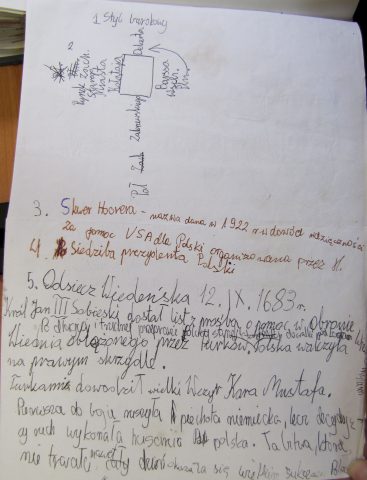 1 Styl barokowy
Rynek Zach.
Strony
Miasta
Kołłątaja
Odwach
Parysa
Pół Zach Zabrawskiego
3. Skwer Hoovera - nazwa dana w 1922 r w dowód wdzięczności
za pomoc USA dla Polski organizowana przez H.
4. Siedziba prezydenta Polski
5. Odsiecz Wiedeńska 12. IX. 1683 r.
Król Jan III Sobieski dostał list z prośbą o pomoc w obronie
B długiej i trudnej przeprawie
Wiednia oblężonego przez turków. Polska walczyła
na prawym skrzydle.
Turkami dowodził wielki Wezyr Kara Mustafa.
Pierwsza do boju ruszyła piechota niemiecka, lecz decydują-
cy ruch wykonała husaria polska. Ta bitwa, która
nie trwała nawet cały dzień okazała się wielkim sukcesem